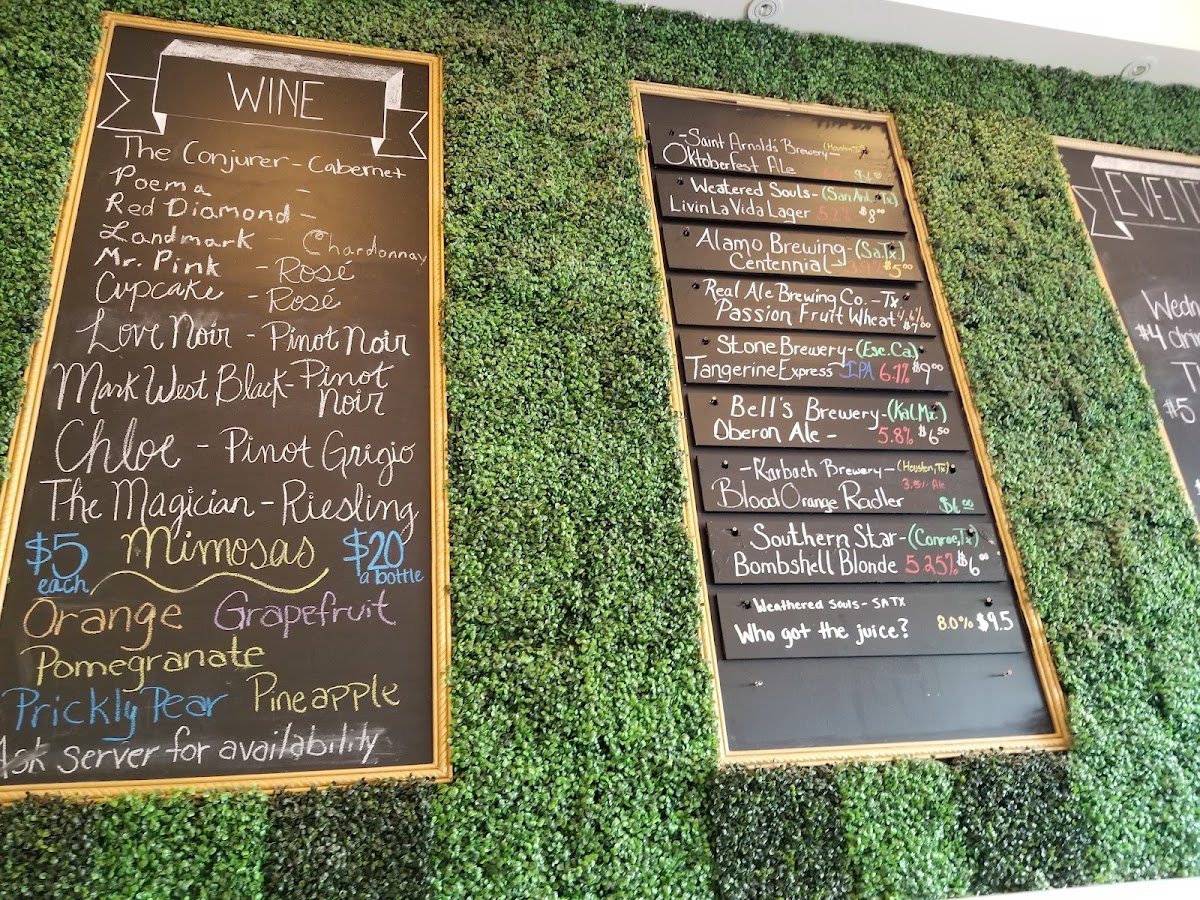 WINE
The Conjurer - Cabernet
Poema -
Red Diamond -
Landmark - Chardonnay
Mr. Pink - Rosé
Cupcake - Rosé
Love Noir - Pinot Noir
Mark West Black - Pinot Noir
Chloe - Pinot Grigio
The Magician - Riesling
$5 each Mimosas $20 a bottle
Orange Grapefruit
Pomegranate
Prickly Pear Pineapple
Ask server for availability
-Saint Arnold's Brewery- (Houston, Tx)
Oktoberfest Ale
Weatered Souls- (San Ant. Tx)
Livin La Vida Lager 5.2% $8.00
Alamo Brewing- (Sa.Tx.)
Centennial 3.9% $5.00
Real Ale Brewing Co. - Tx
Passion Fruit Wheat 4.6% $7.00
Stone Brewery- (Esc. Ca)
Tangerine Express IPA 6.7% $9.00
Bell's Brewery- (Kal. Mi.)
Oberon Ale - 5.8% $6.50
-Karbach Brewery- (Houston, Tx)
Blood Orange Radler $6.00
Southern Star- (Conroe, Tx)
Bombshell Blonde 5.25% $6.00
Weathered Souls - SATX
Who got the juice? 8.0% $9.5
EVEN
Wedn
$4 drin
$5